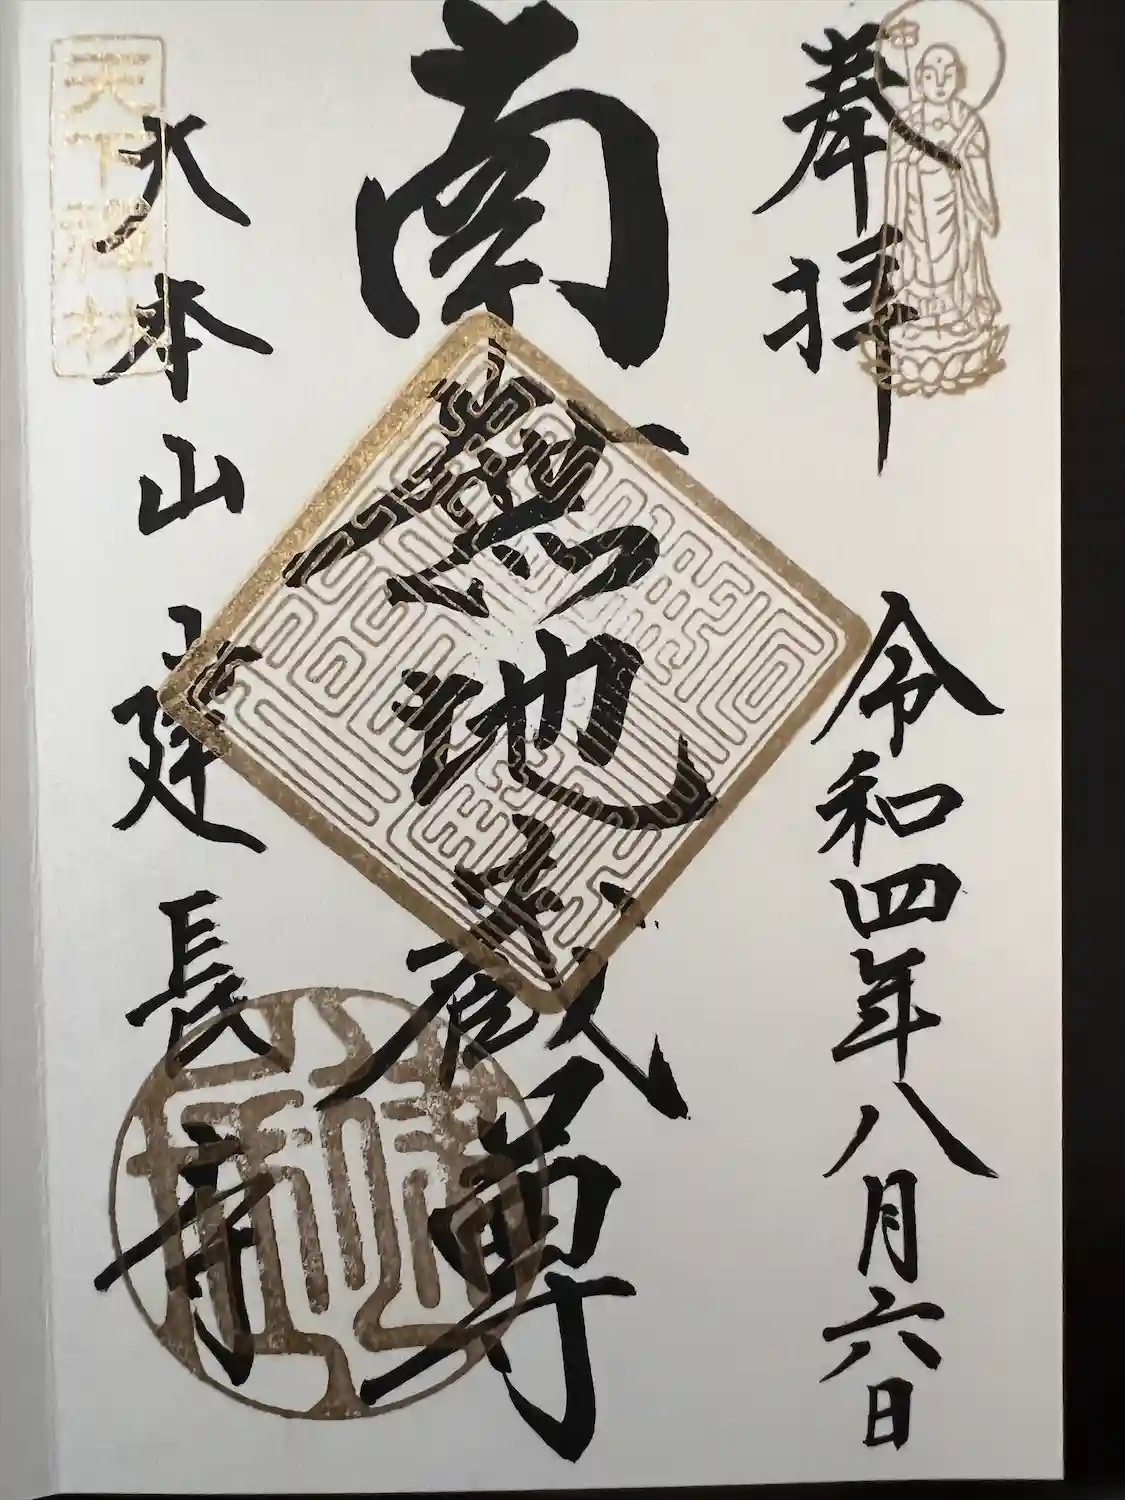 奉拝
令和四年八月六日
南無地蔵尊
大本山建長寺
天下禅林